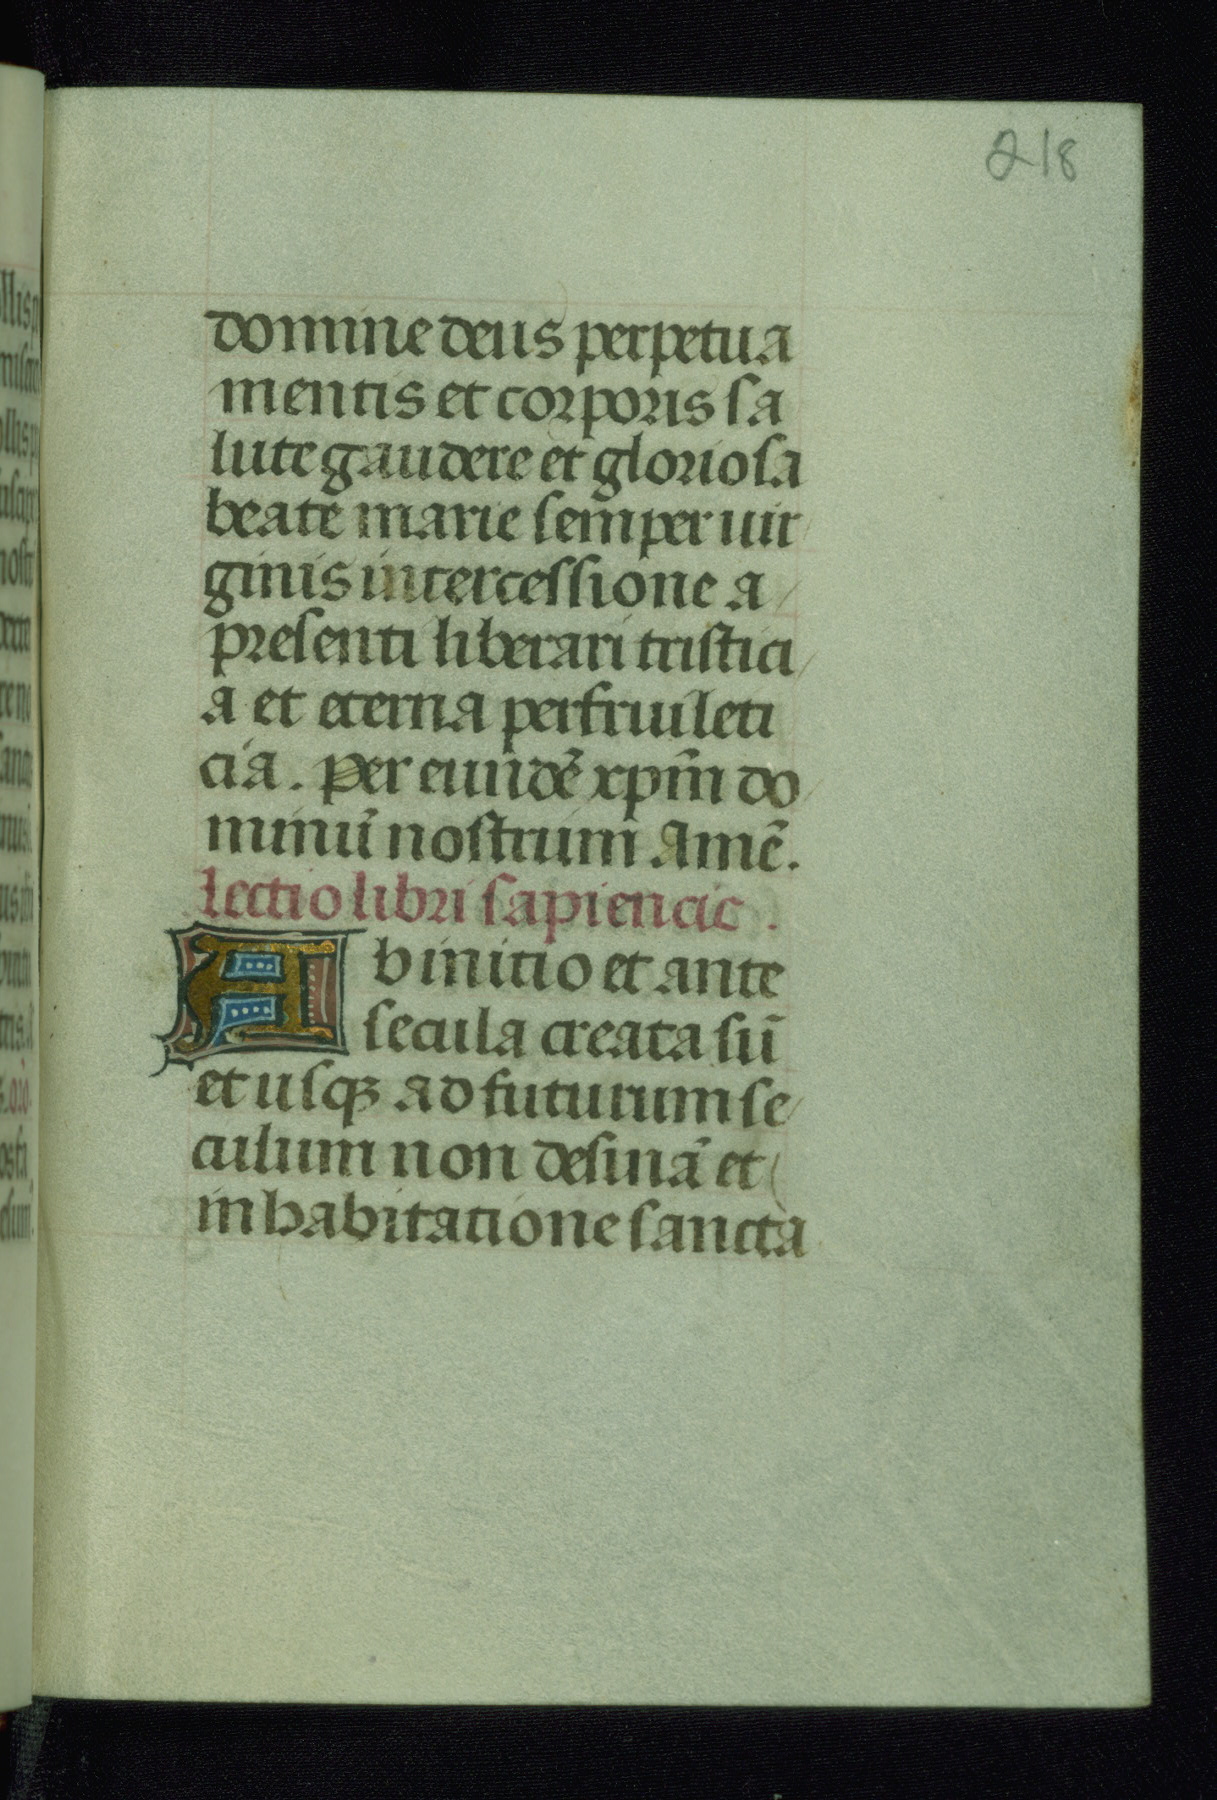 218
domine deus perpetua
mentis et corporis sa
lute gaudere et gloriosa
beate marie semper uir
ginis intercessione a
presenti liberari tristici
a et eterna perfrui leti
cia. Per eundē xp̄m do
minū nostrum Amē.
Lectio libri sapiencie.
Ab inicio et ante
secula creata sū
et usqꝫ ad futurum se
culum non desinā et
in habitatione sancta